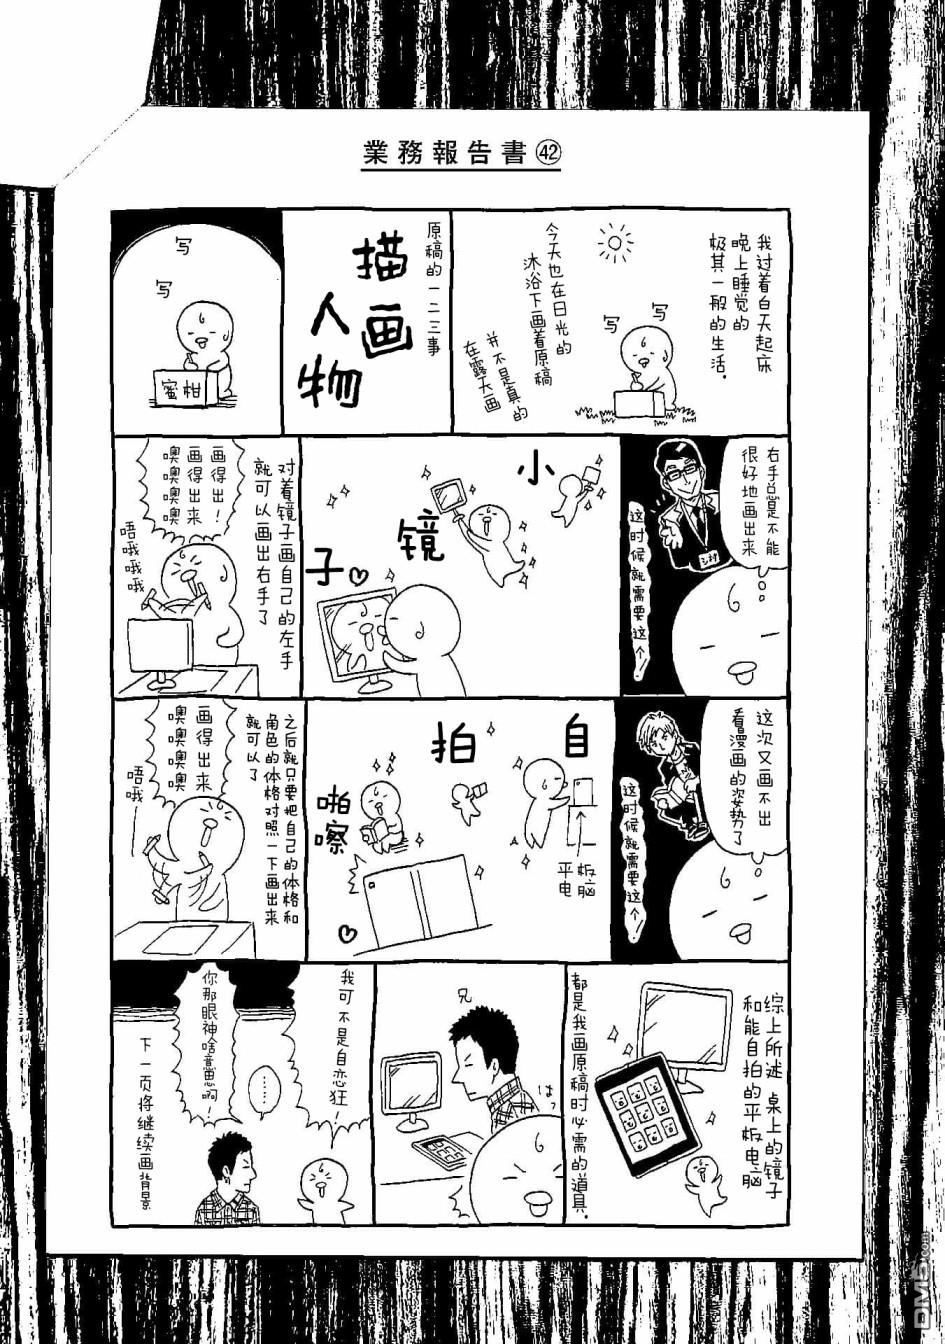 業務報告書㊷
我过着白天起床
晚上睡觉的
极其一般的生活.
今天也在日光的
沐浴下画着原稿
并不是真的
在露天画
写
写
原稿的一二三事
描画
人物
写
写
蜜柑
右手总是不能
很好地画出来
这时候就需要这个!
小
镜
子
对着镜子画自己的左手
就可以画出右手了
画得出!
画得出来
噢噢噢噢
唔哦哦哦
这次又画不出
看漫画的姿势了
这时候就需要这个!
自
拍
平板
电脑
啪嚓
之后就只要把自己的体格和
角色的体格对照一下画出来
就可以了
画得出来
噢噢噢噢
唔哦
综上所述 桌上的镜子
和能自拍的平板电脑
都是我画原稿时必需的道具.
兄
はっ
我可不是自恋狂!
……
你那眼神啥意思啊!
下一页将继续画背景
DM5.com